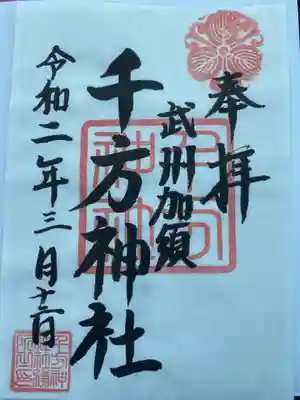 奉拝
武州加須
千方神社
令和二年三月十二日